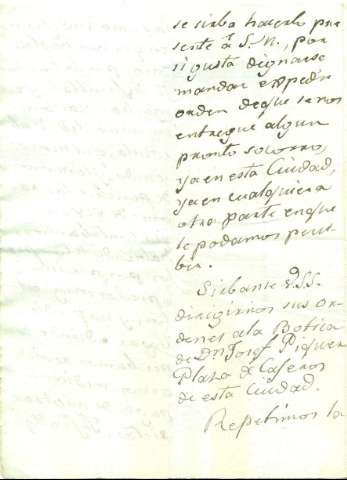 se sirba hacerlo pre
sente a S. M., por
si gusta dignarse
mandar expedir
orden de que se nos
entregue algun
pronto socorro,
ya en esta Ciudad,
ya en cualquiera
otra parte en que
le podamos perci
bir.
Sirbanse V.SS.
dirigirnos sus or-
denes a la Botica
de Dn. Josef Piquer
Plaza de Caseros
de esta Ciudad.
Repetimos la